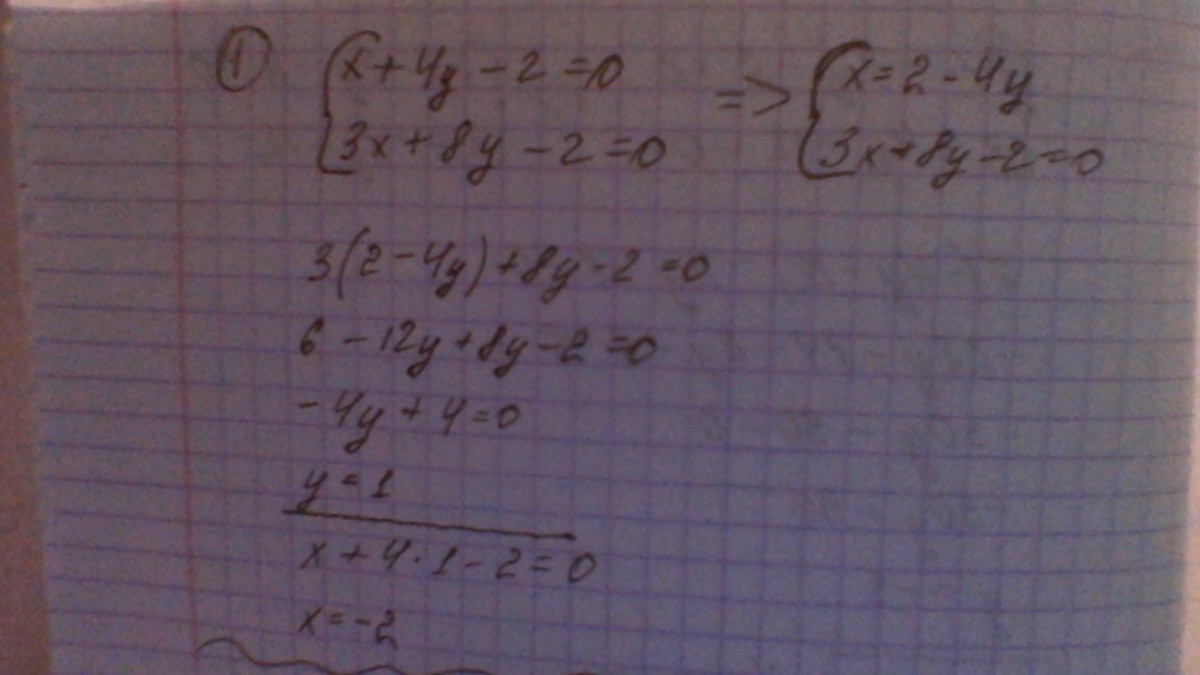 1 { x + 4y - 2 = 0 => { x = 2 - 4y
3x + 8y - 2 = 0 3x + 8y - 2 = 0
3(2 - 4y) + 8y - 2 = 0
6 - 12y + 8y - 2 = 0
-4y + 4 = 0
y = 1
x + 4 · 1 - 2 = 0
x = -2